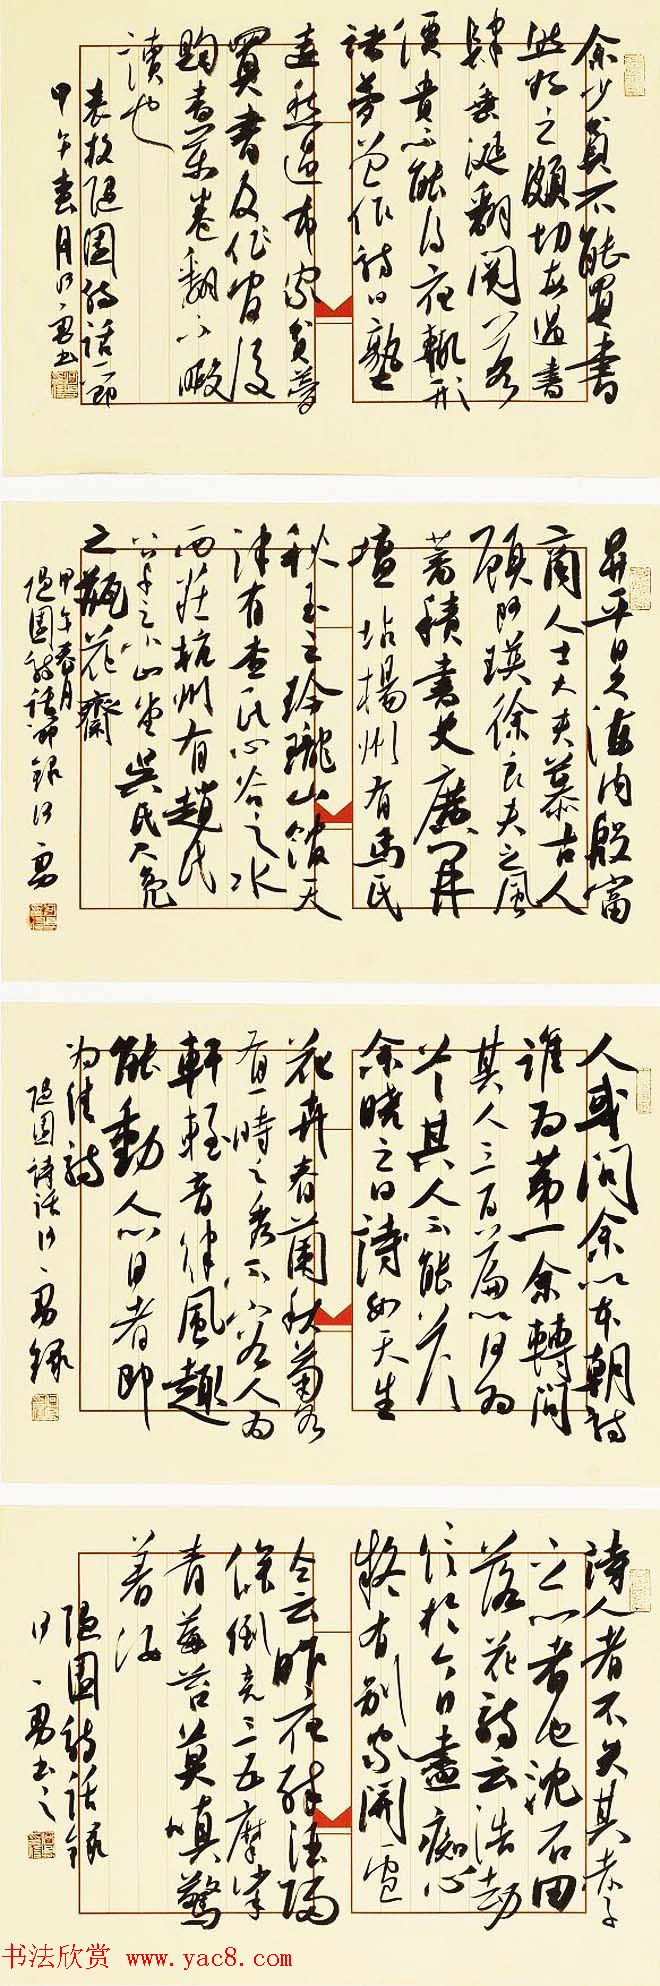 余少貧不能買書
然好之頗切每過書
肆垂涎翻閱若
價貴不能得夜輒形
諸夢曾作詩曰塾
遠愁過市家貧夢
買書及作官後
購書萬卷翻不暇
讀也
袁枚隨園詩話一節
甲午春月何一勇书
昇平日久海内殷富
商人士大夫慕古人
顧阿瑛徐良夫之風
蓄積書史廣開
壇坫揚州有馬氏
秋玉之玲瓏山館天
津有查氏心谷之水
西莊杭州有趙氏
公千之小山堂吳氏尺凫
之瓶花齋
甲午春月
隨園詩話節錄何一勇
人或问余以本朝詩
谁为第一余轉问
其人三百篇以何为
首其人不能答
余曉之曰詩如天生
花卉春蘭秋菊各
有一時之秀不容人为
軒輊音律風趣
能動人心目者即
为佳詩
隨園詩话何一勇錄
詩人者不失其赤子
之心者也沈石田
落花詩云浩劫
信於今日盡癡心
疑有別家開盧
仝云昨夜醉酒歸
僕倒竟三五摩挲
青莓苔莫嗔驚
著汝
隨園詩話錄
何一勇书之
书法欣赏 www.yac8.com